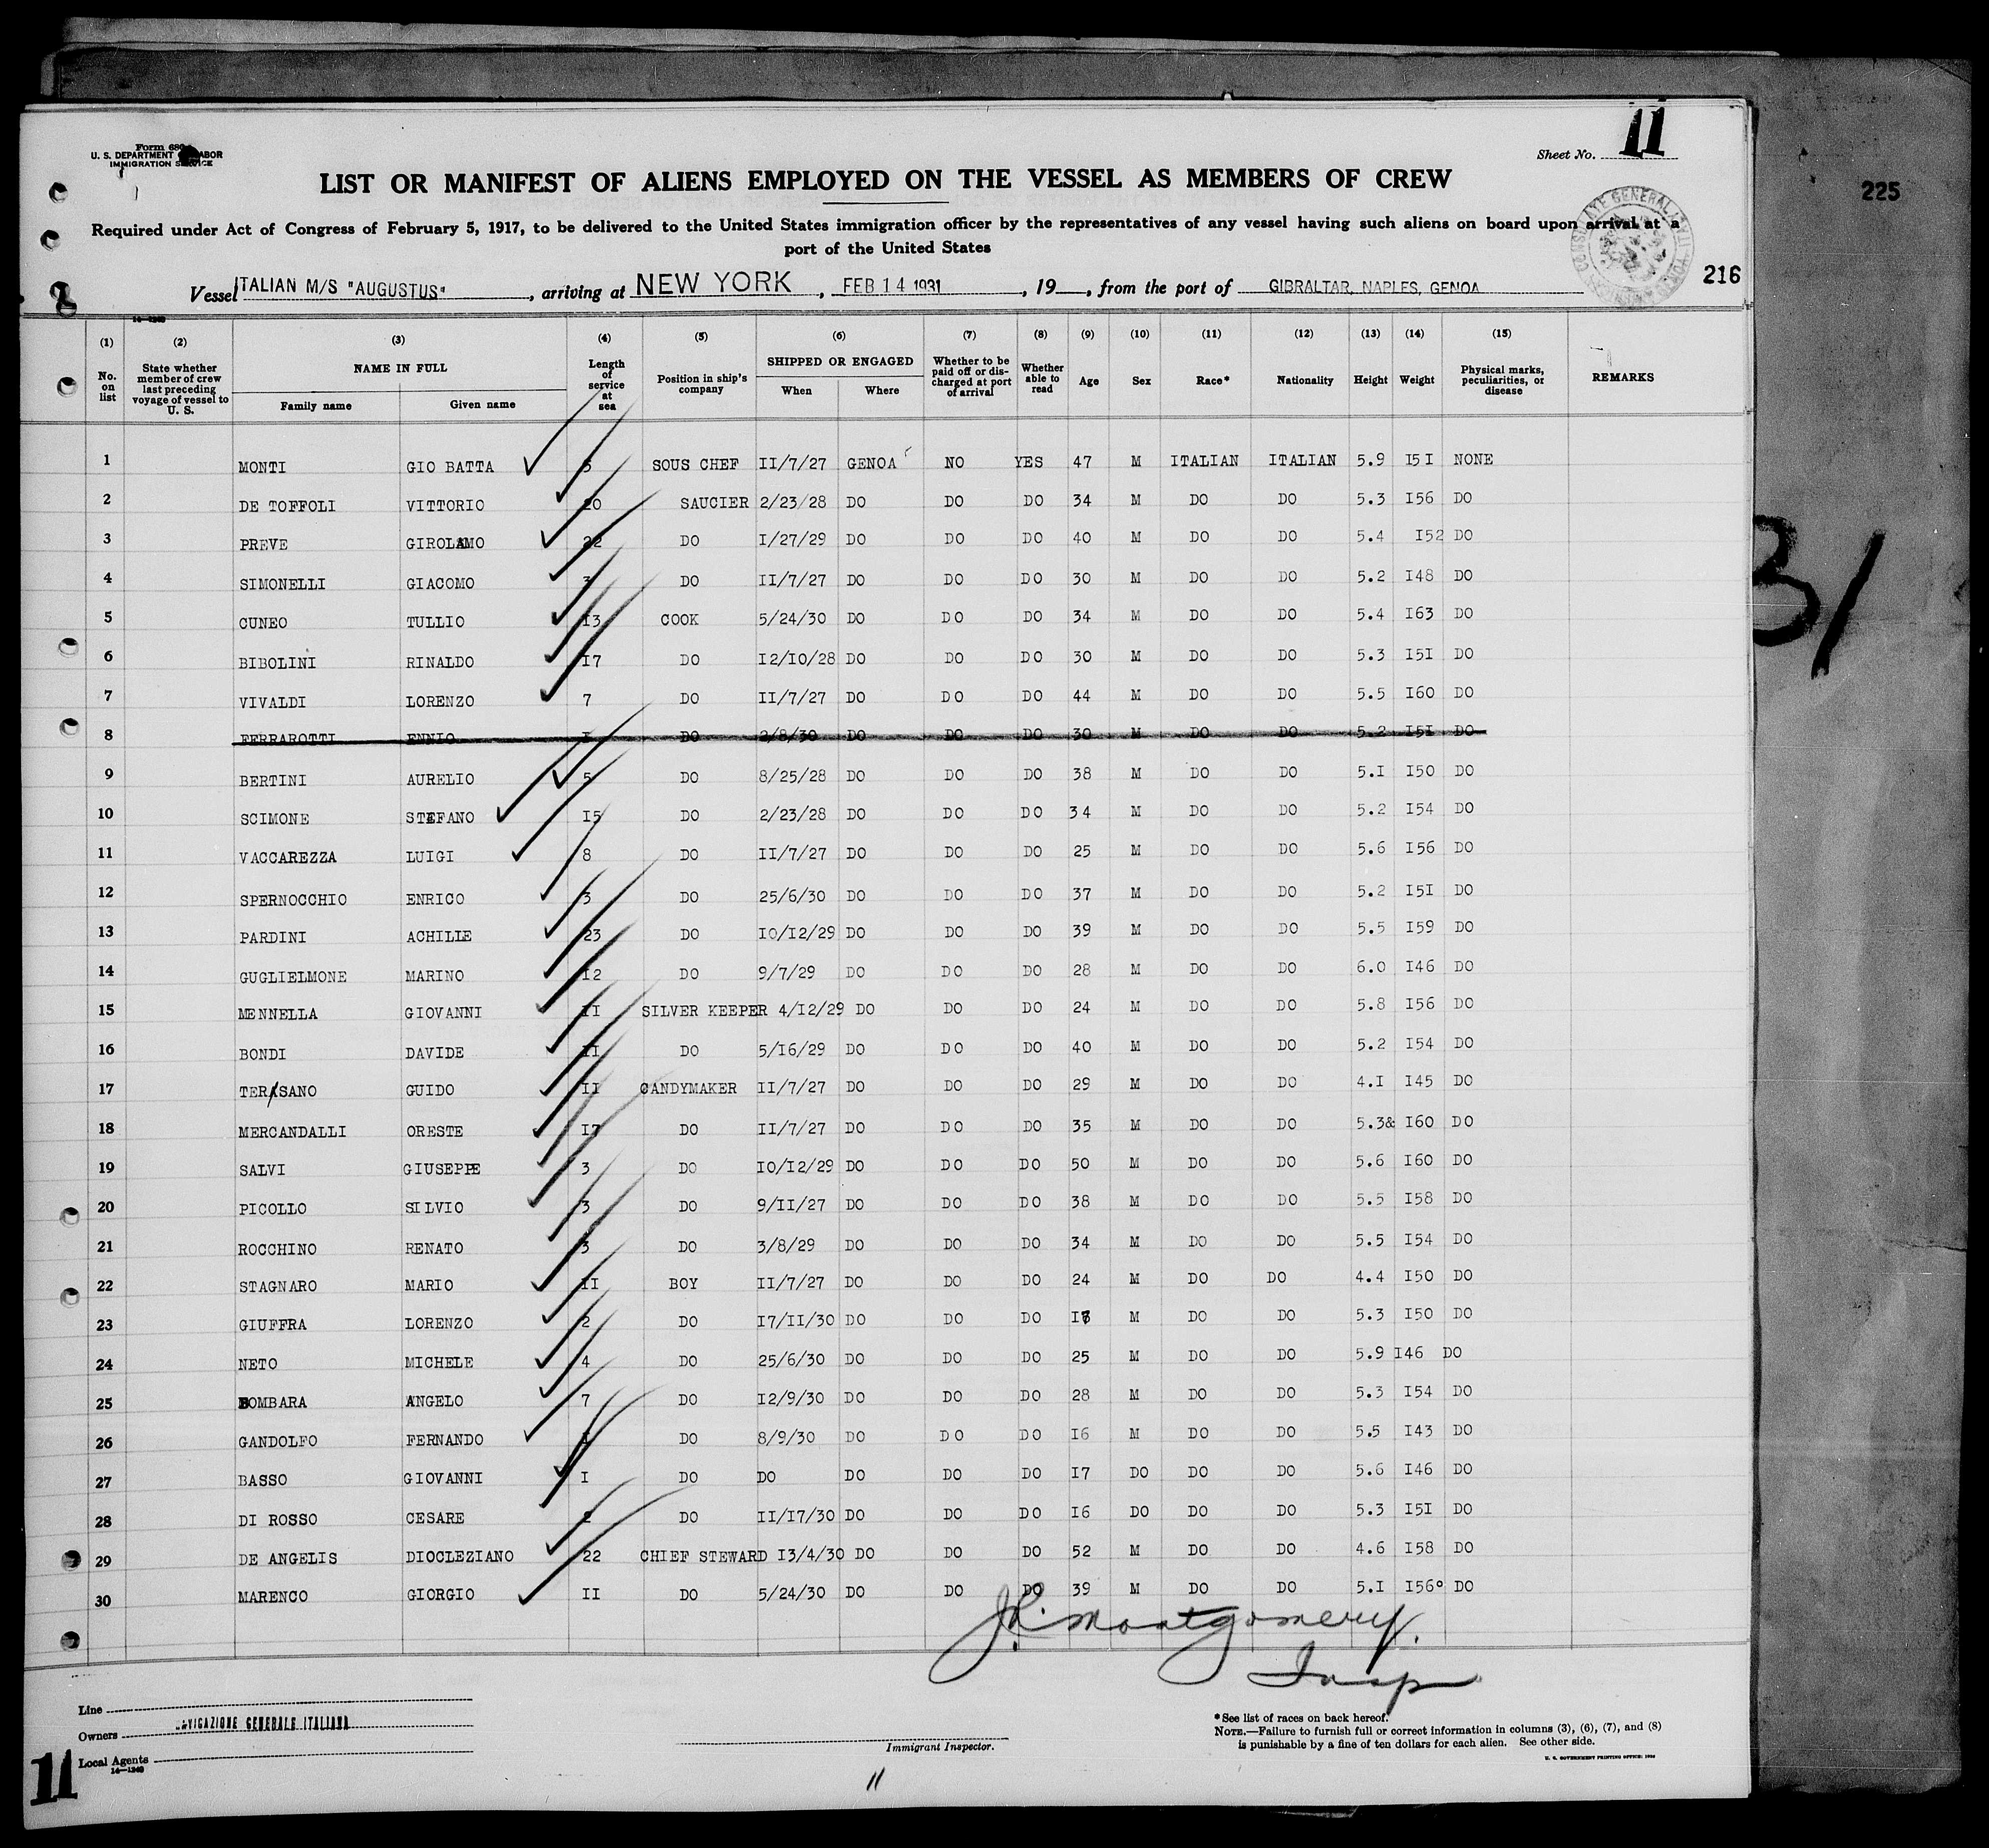 11
Form 680
U. S. DEPARTMENT LABOR
IMMIGRATION SERVICE
Sheet No. 11
LIST OR MANIFEST OF ALIENS EMPLOYED ON THE VESSEL AS MEMBERS OF CREW
225
Required under Act of Congress of February 5, 1917, to be delivered to the United States immigration officer by the representatives of any vessel having such aliens on board upon arrival at a
port of the United States
216
Vessel ITALIAN M/S "AUGUSTUS", arriving at NEW YORK, FEB 14 1931, 19__, from the port of GIBRALTAR, NAPLES, GENOA
(1) (2) (3) (4) (5) (6) (7) (8) (9) (10) (11) (12) (13) (14) (15)
No. on list | State whether member of crew last preceding voyage of vessel to U. S. | NAME IN FULL | Family name | Given name | Length of service at sea | Position in ship's company | SHIPPED OR ENGAGED | When | Where | Whether to be paid off or discharged at port of arrival | Whether able to read | Age | Sex | Race* | Nationality | Height | Weight | Physical marks, peculiarities, or disease | REMARKS
1 MONTI GIO BATTA SOUS CHEF II/7/27 GENOA NO YES 47 M ITALIAN ITALIAN 5.9 I5I NONE
2 DE TOFFOLI VITTORIO 20 SAUCIER 2/23/28 DO DO DO 34 M DO DO 5.3 I56 DO
3 PREVE GIROLAMO 22 DO I/27/29 DO DO DO 40 M DO DO 5.4 I52 DO
4 SIMONELLI GIACOMO 3 DO II/7/27 DO DO DO 30 M DO DO 5.2 I48 DO
5 CUNEO TULLIO I3 COOK 5/24/30 DO DO DO 34 M DO DO 5.4 I63 DO
6 BIBOLINI RINALDO I7 DO I2/I0/28 DO DO DO 30 M DO DO 5.3 I5I DO
7 VIVALDI LORENZO 7 DO II/7/27 DO DO DO 44 M DO DO 5.5 I60 DO
8 FERRAROTTI ENNIO I DO 2/8/30 DO DO DO 30 M DO DO 5.2 I5I DO
9 BERTINI AURELIO 5 DO 8/25/28 DO DO DO 38 M DO DO 5.I I50 DO
10 SCIMONE STEFANO I5 DO 2/23/28 DO DO DO 34 M DO DO 5.2 I54 DO
11 VACCAREZZA LUIGI 8 DO II/7/27 DO DO DO 25 M DO DO 5.6 I56 DO
12 SPERNOCCHIO ENRICO 3 DO 25/6/30 DO DO DO 37 M DO DO 5.2 I5I DO
13 PARDINI ACHILLE 23 DO I0/I2/29 DO DO DO 39 M DO DO 5.5 I59 DO
14 GUGLIELMONE MARINO I2 DO 9/7/29 DO DO DO 28 M DO DO 6.0 I46 DO
15 MENNELLA GIOVANNI II SILVER KEEPER 4/I2/29 DO DO DO 24 M DO DO 5.8 I56 DO
16 BONDI DAVIDE II DO 5/I6/29 DO DO DO 40 M DO DO 5.2 I54 DO
17 TERASANO GUIDO II CANDYMAKER II/7/27 DO DO DO 29 M DO DO 4.I I45 DO
18 MERCANDALLI ORESTE I7 DO II/7/27 DO DO DO 35 M DO DO 5.3& I60 DO
19 SALVI GIUSEPPE 3 DO I0/I2/29 DO DO DO 50 M DO DO 5.6 I60 DO
20 PICOLLO SILVIO 3 DO 9/II/27 DO DO DO 38 M DO DO 5.5 I58 DO
21 ROCCHINO RENATO 3 DO 3/8/29 DO DO DO 34 M DO DO 5.5 I54 DO
22 STAGNARO MARIO II BOY II/7/27 DO DO DO 24 M DO DO 4.4 I50 DO
23 GIUFFRA LORENZO 2 DO I7/II/30 DO DO DO M DO DO 5.3 I50 DO
24 NETO MICHELE 4 DO 25/6/30 DO DO DO 25 M DO DO 5.9 I46 DO
25 BOMBARA ANGELO 7 DO I2/9/30 DO DO DO 28 M DO DO 5.3 I54 DO
26 GANDOLFO FERNANDO DO 8/9/30 DO DO DO I6 M DO DO 5.5 I43 DO
27 BASSO GIOVANNI I DO DO DO DO DO I7 DO DO DO 5.6 I46 DO
28 DI ROSSO CESARE 2 DO II/I7/30 DO DO DO I6 DO DO DO 5.3 I5I DO
29 DE ANGELIS DIOCLEZIANO 22 CHIEF STEWARD I3/4/30 DO DO DO 52 M DO DO 4.6 I58 DO
30 MARENCO GIORGIO II DO 5/24/30 DO DO DO 39 M DO DO 5.I I56° DO
31
Montgomery
Insp
Line
Owners NAVIGAZIONE GENERALE ITALIANA
Local Agents
Immigrant Inspector.
*See list of races on back hereof.
NOTE.—Failure to furnish full or correct information in columns (3), (6), (7), and (8)
is punishable by a fine of ten dollars for each alien. See other side.
11
11